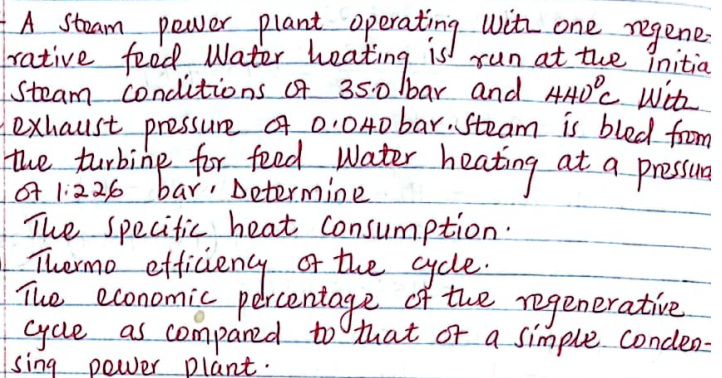 A Steam power plant operating with one regene-
rative feed Water heating is run at the initia
Steam conditions of 35.0 bar and 440°C With
exhaust pressure of 0.040 bar. Steam is bled from
the turbine for feed Water heating at a pressure
of 1.226 bar. Determine
The specific heat Consumption.
Thermo efficiency of the cycle.
The economic percentage of the regenerative
cycle as compared to that of a simple conden-
sing power plant.